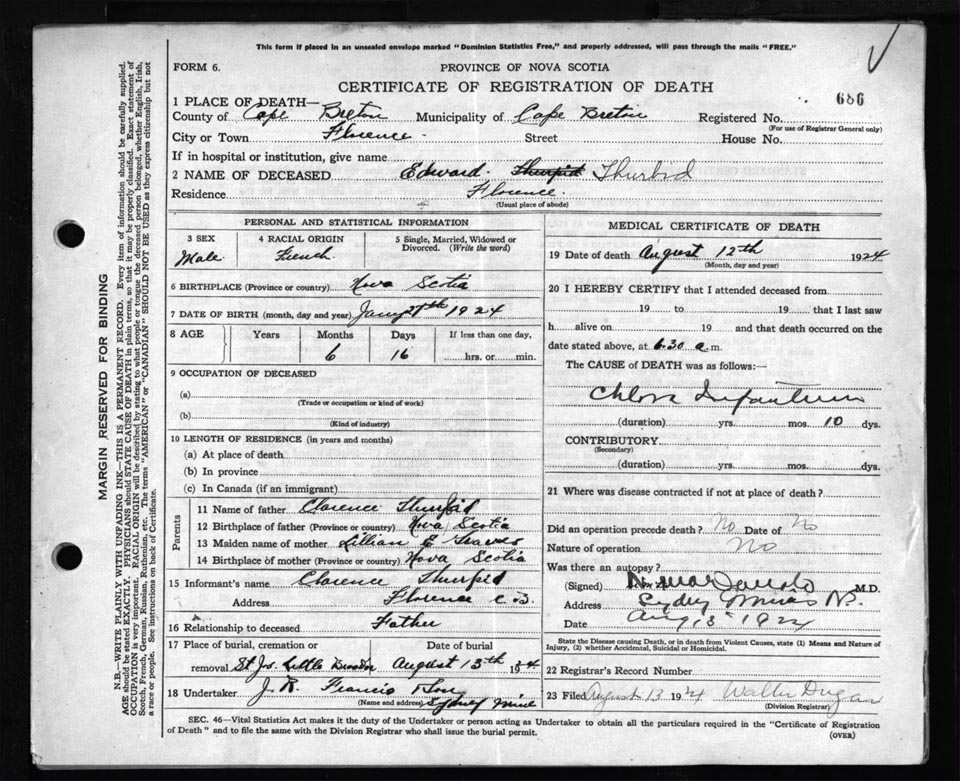 This form if placed in an unsealed envelope marked "Dominion Statistics Free," and properly addressed, will pass through the mails "FREE."
FORM 6.
PROVINCE OF NOVA SCOTIA
CERTIFICATE OF REGISTRATION OF DEATH
686
1 PLACE OF DEATH—
County of Cape Breton Municipality of Cape Breton Registered No.
(For use of Registrar General only)
City or Town Florence Street House No.
If in hospital or institution, give name
2 NAME OF DECEASED Edward Thurbid
Residence Florence
(Usual place of abode)
PERSONAL AND STATISTICAL INFORMATION
3 SEX
Male
4 RACIAL ORIGIN
French
5 Single, Married, Widowed or Divorced. (Write the word)
6 BIRTHPLACE (Province or country) Nova Scotia
7 DATE OF BIRTH (month, day and year) 1924
8 AGE Years Months Days If less than one day,
6 16 hrs. or min.
9 OCCUPATION OF DECEASED
(a)
(Trade or occupation or kind of work)
(b)
(Kind of industry)
10 LENGTH OF RESIDENCE (in years and months)
(a) At place of death
(b) In province
(c) In Canada (if an immigrant)
Parents
11 Name of father Clarence Thurfid
12 Birthplace of father (Province or country) Nova Scotia
13 Maiden name of mother Lillian E
14 Birthplace of mother (Province or country) Nova Scotia
15 Informant's name Clarence Thurfid
Address Florence C.B
16 Relationship to deceased Father
17 Place of burial, cremation or Date of burial
removal Little August 13th 1924
18 Undertaker J. R. Francis & Son
(Name and address) Sydney Mine
MEDICAL CERTIFICATE OF DEATH
19 Date of death August 12th 1924
(Month, day and year)
20 I HEREBY CERTIFY that I attended deceased from
19 to 19 that I last saw
h alive on 19 and that death occurred on
date stated above, at 6.30 a.m.
The CAUSE of DEATH was as follows:—
Infantum
(duration) yrs. mos. 10 dys.
CONTRIBUTORY
(Secondary)
(duration) yrs. mos. dys.
21 Where was disease contracted if not at place of death?
Did an operation precede death? No Date of No
Nature of operation No
Was there an autopsy?
(Signed) M.D.
Address Sydney Mines N.S.
Date Aug 13 1924
State the Disease causing Death, or in death from Violent Causes, state (1) Means and Nature of
Injury, (2) whether Accidental, Suicidal or Homicidal.
22 Registrar's Record Number
23 Filed August 13 1924 Walter Dugan
(Division Registrar)
SEC. 46—Vital Statistics Act makes it the duty of the Undertaker or person acting as Undertaker to obtain all the particulars required in the "Certificate of Registration
of Death" and to file the same with the Division Registrar who shall issue the burial permit.
(OVER)
MARGIN RESERVED FOR BINDING
N.B.—WRITE PLAINLY WITH UNFADING INK—THIS IS A PERMANENT RECORD. Every item of information should be carefully supplied.
AGE should be stated EXACTLY. PHYSICIANS should STATE CAUSE OF DEATH in plain terms, so that it may be properly classified. Exact statement of
OCCUPATION is very important. RACIAL ORIGIN will be described by stating to what people or tongue the deceased person belonged, whether English, Irish,
Scotch, French, German, Russian, Ruthenian, etc. The terms "AMERICAN" or "CANADIAN" SHOULD NOT BE USED as they express citizenship but not
a race or people. See instructions on back of Certificate.